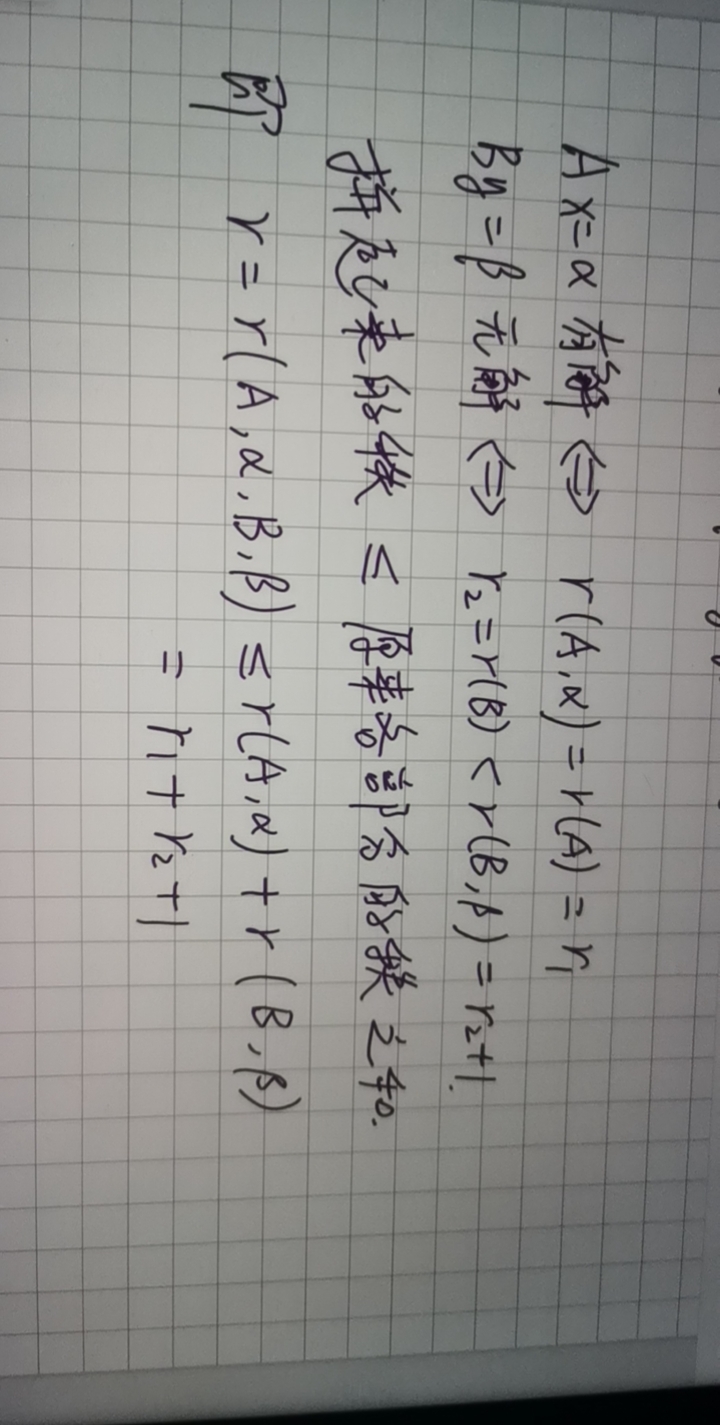 Ax=α 有解 ⇔ r(A,α)=r(A)=r₁
By=β 无解 ⇔ r₂=r(B)<r(B,β)=r₂+1.
拼起来的秩 ≤ 原来各部分的秩之和.
即 r=r(A,α,B,β) ≤ r(A,α)+r(B,β)
= r₁+r₂+1